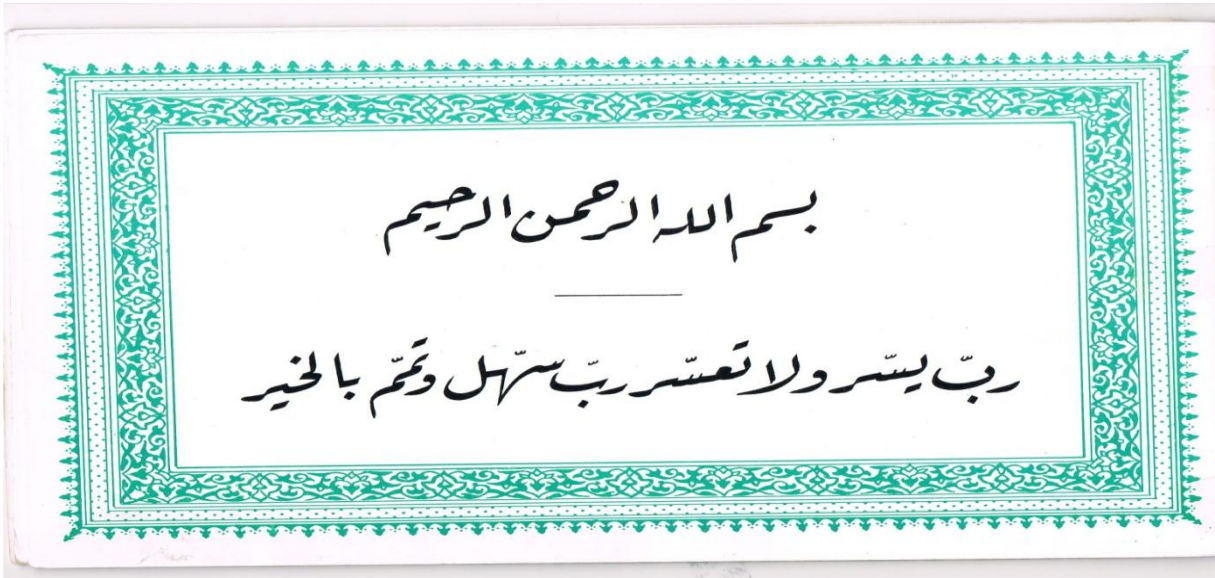 بسم الله الرحمن الرحيم
ربّ يسّر ولا تعسّر ربّ سهّل وتمّم بالخير